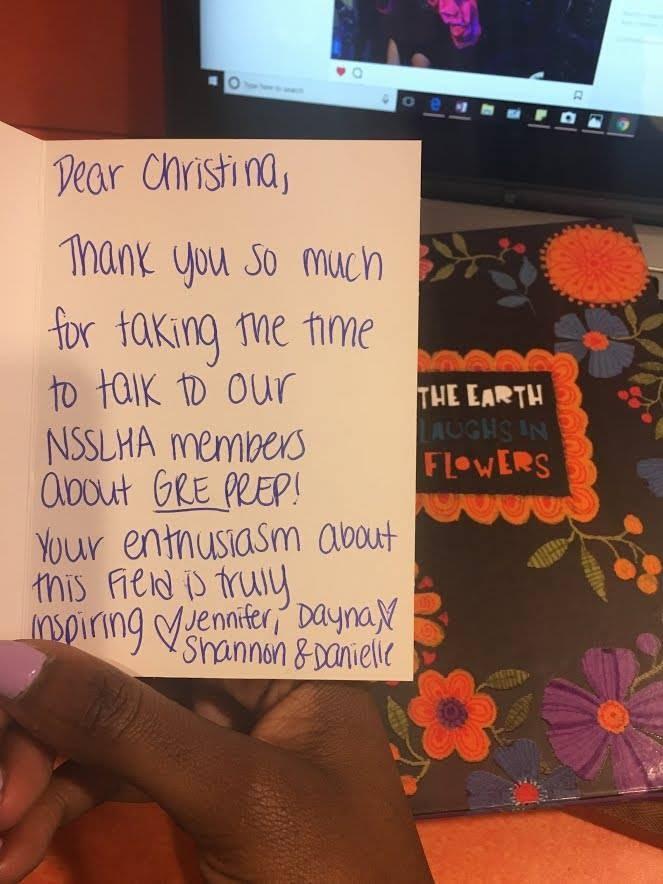 Type here to search
Dear Christina,
Thank you so much
for taking the time
to talk to our
NSSLHA members
about GRE PREP!
Your enthusiasm about
this field is truly
inspiring ♡ Jennifer, Dayna, ♡
Shannon & Danielle
THE EARTH
LAUGHS IN
FLOWERS